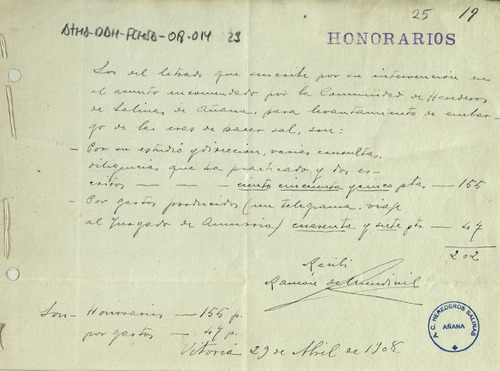 25 19
ATHA-DAH-FCHSA-OR-014 23
HONORARIOS
Los del letrado que suscribe por su intervención en
el asunto encomendado por la Comunidad de Herederos
de Salinas de Añana, para levantamiento de embar-
go de las eras de hacer sal, son:
- Por su estudio y dirección, varias consultas,
diligencias que ha practicado y dos es-
critos — — — ciento cincuenta y cinco ptas. — 155
- Por gastos producidos (un telegrama, viaje
al Juzgado de Amurrio) cuarenta y siete pts. — 47
202
Recibí
Ramón de
Son - Honorarios — 155 p.
por gastos — 47 p.
Vitoria 29 de Abril de 1908.
A.C. HEREDEROS SALINAS
AÑANA